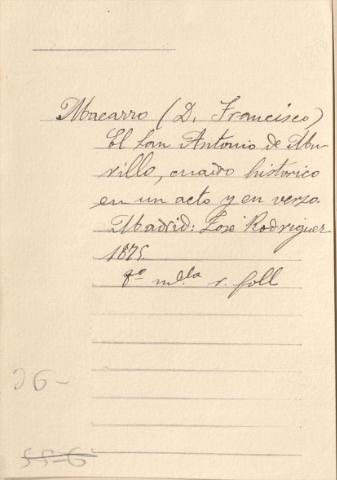 Macarro (D. Francisco)
El San Antonio de Mu-
rillo, cuadro historico
en un acto y en verso.
Madrid: José Rodriguez
1875.
8º m.lla r. foll
26-
55-6